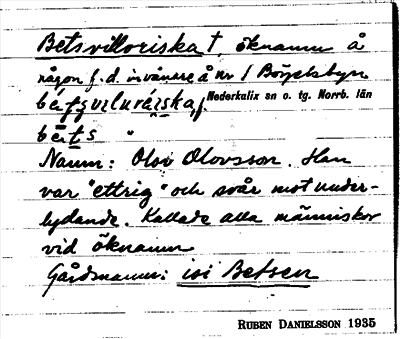 Betsvilloriska †, öknamn å
någon f.d. invånare å nr 1 Börjelsbyn
Nederkalix sn o. tg. Norrb. län
bérts "
Namn: Olov Olovsson. Han
var "ettrig" och svår mot under-
lydande. Kallade alla människor
vid öknamn
Gårdsnamn: isi Betsen
RUBEN DANIELSSON 1935